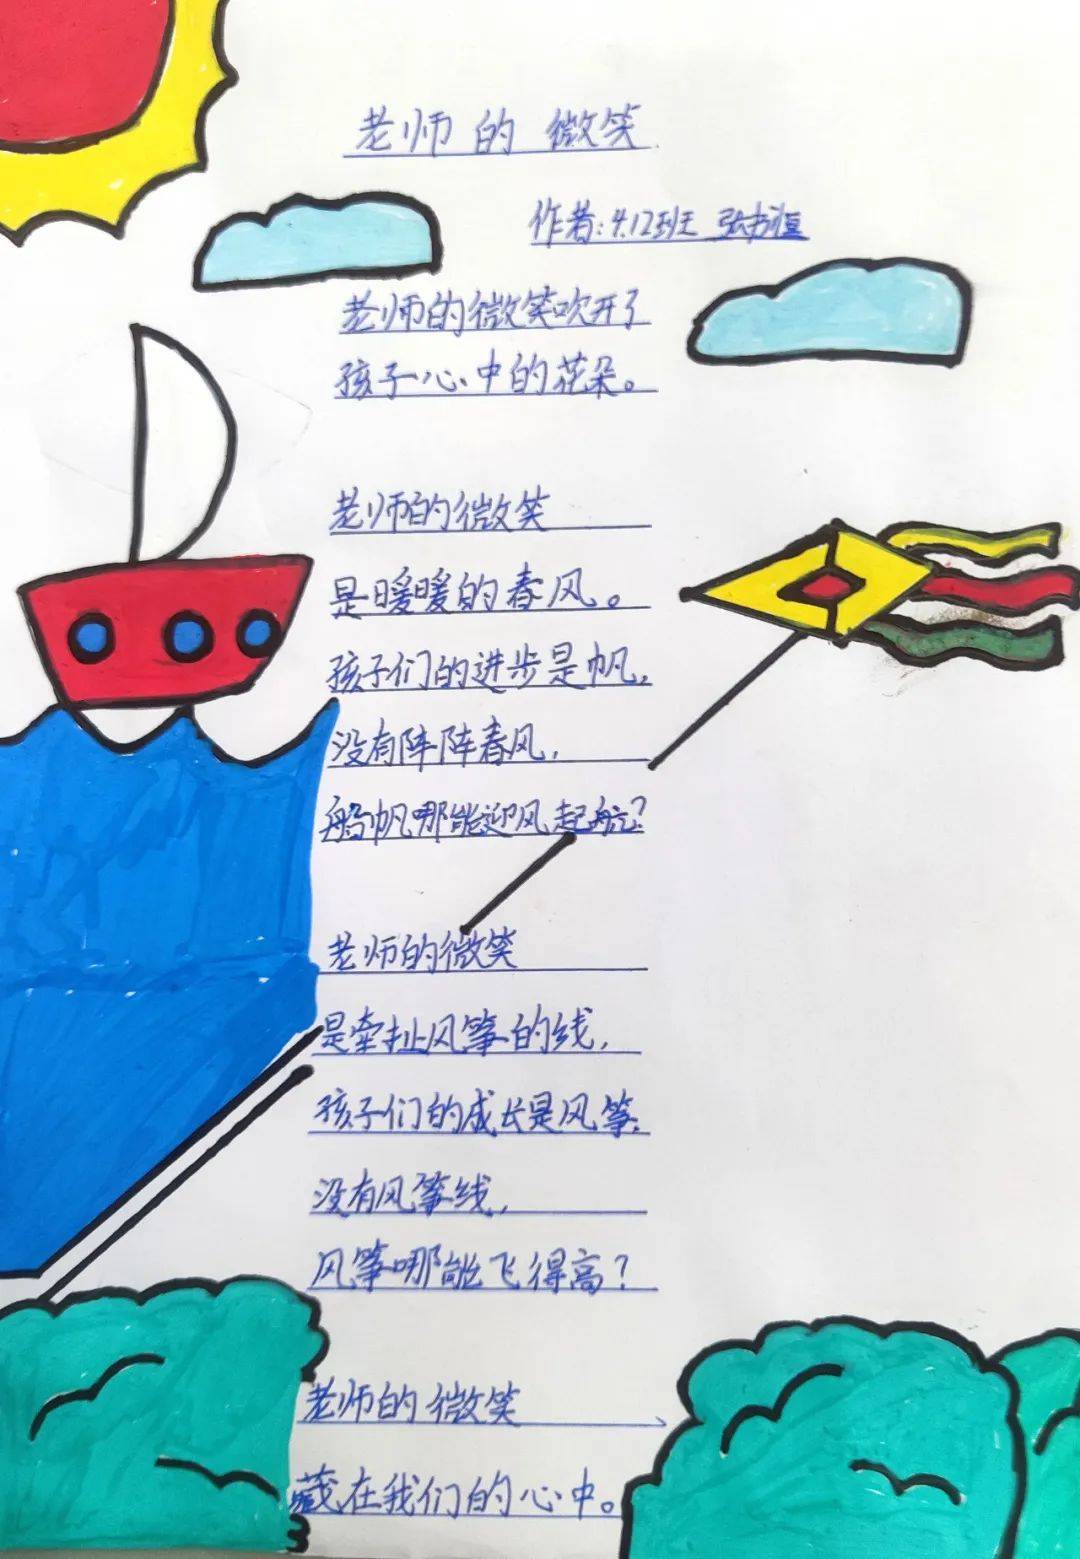 老师的微笑
作者:4.12班 张书恒
老师的微笑吹开了
孩子心中的花朵。
老师的微笑
是暖暖的春风。
孩子们的进步是帆,
没有阵阵春风,
船帆哪能迎风起航?
老师的微笑
是牵扯风筝的线,
孩子们的成长是风筝,
没有风筝线,
风筝哪能飞得高?
老师的微笑
藏在我们的心中。